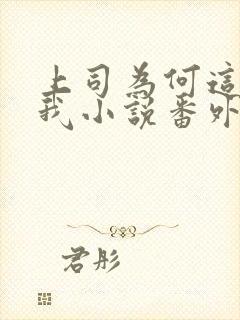 上司為何這
我小說番外
君彤